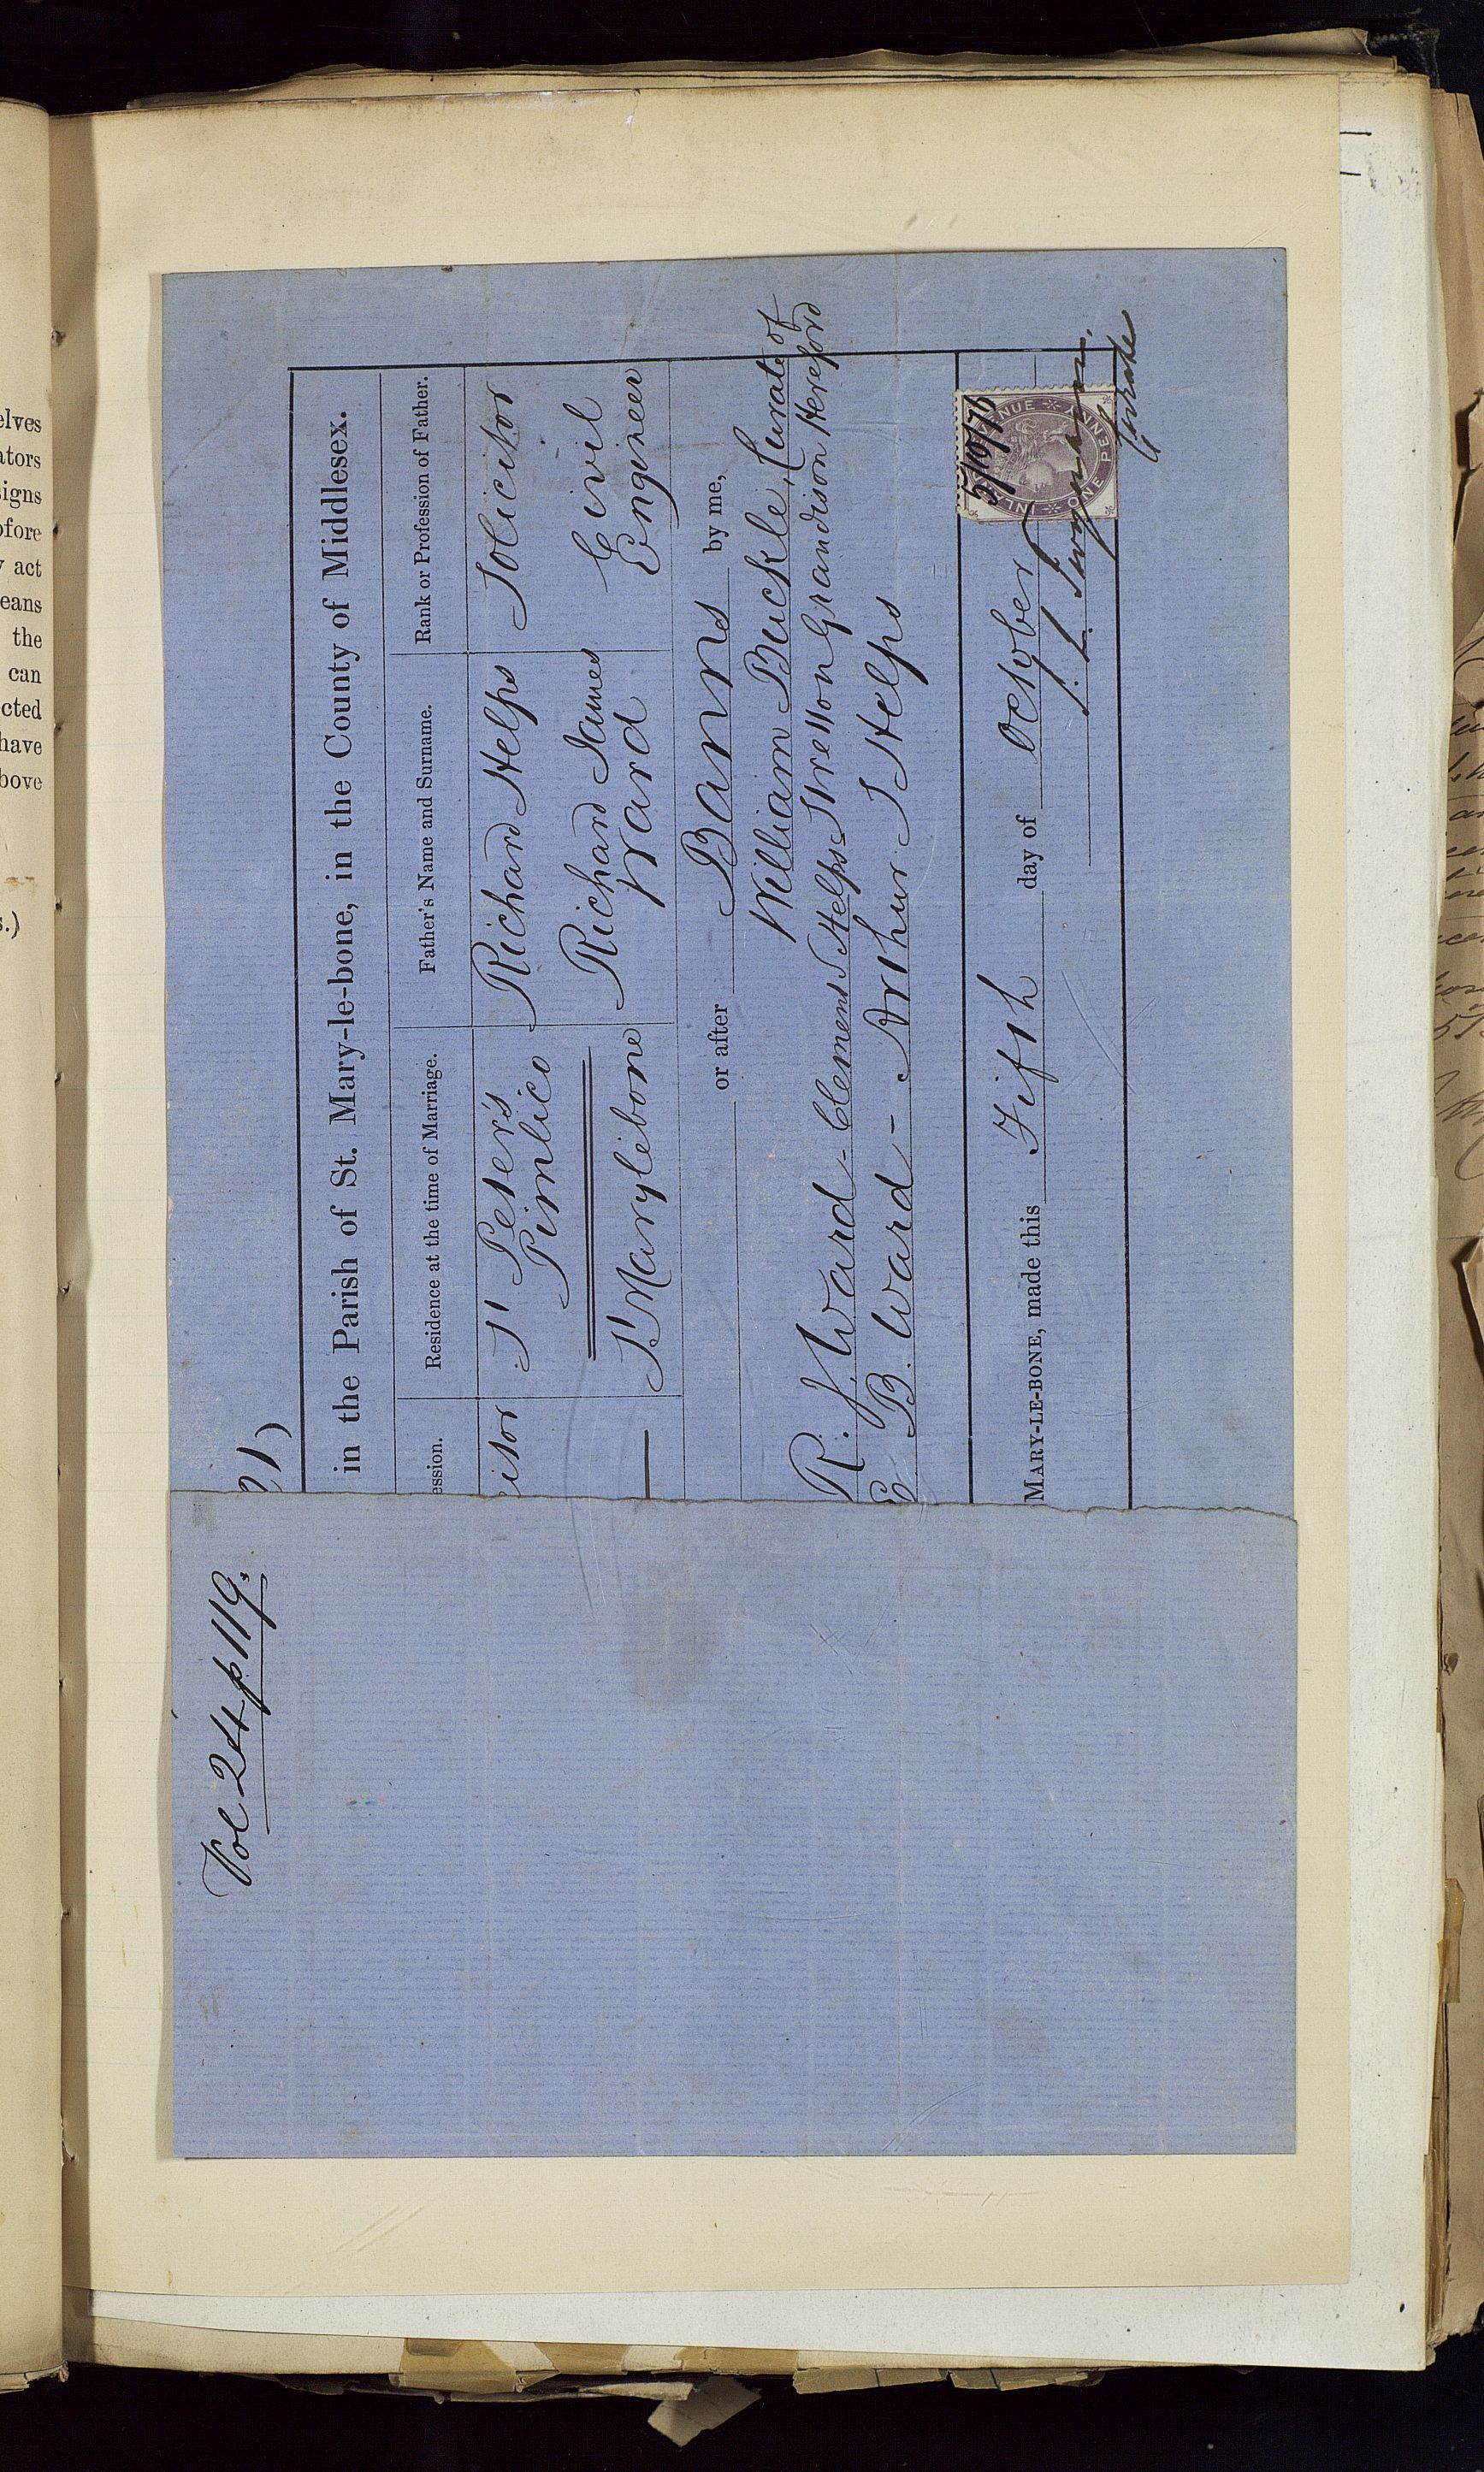 elves
ators
signs
ofore
y act
eans
the
can
cted
have
bove
s.)
Vol 24 p 119.
in the Parish of St. Mary-le-bone, in the County of Middlesex.
ession.
Residence at the time of Marriage.
Father's Name and Surname.
Rank or Profession of Father.
itor
St Peter's
Pimlico
Richard Helps
Solicitor
—
St Marylebone
Richard James
Ward
Civil
Engineer
or after Banns by me,
William Buckle, Curate of
R. J. Ward - Clement Helps Stretton Grandison Hereford
B. Ward - Arthur S Helps
MARY-LE-BONE, made this Fifth day of October
5/10/76
INLAND REVENUE
ONE PENNY
Curate